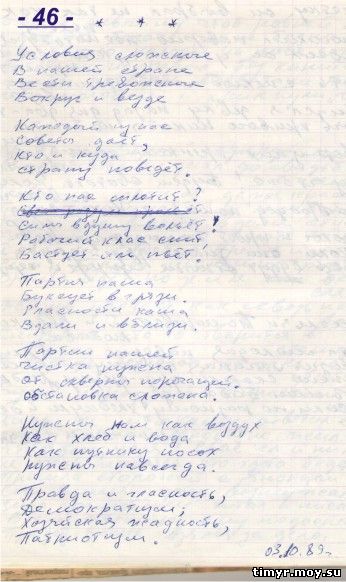 - 46 -
* * *
Условия сложные
В нашей стране
Вести тревожные
Вокруг и везде
Каждый из нас
Советы даёт,
Кто и куда
Страну поведёт.
Кто нас сплотит?
Силы в душу вольёт!
Рабочий клас спит,
Бастует иль пьёт.
Партия наша
Буксует в грязи.
Гласности каша
Вдали и вблизи.
Партии нашей
Чистка нужна
От скверны порочащей.
Обстановка сложна.
Нужны нам как воздух
Как хлеб и вода
Как путнику посох
Нужны навсегда.
Правда и гласность,
Демократизм,
Хозяйская жадность,
Патриотизм.
03.10.89г.
timyr.moy.su